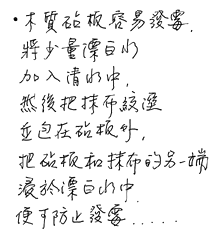 •木質砧板容易發霉.
將少量漂白水
加入清水中,
然後把抹布絞溼
並包在砧板外,
把砧板和抹布的另一端
浸於漂白水中
便可防止發霉.....